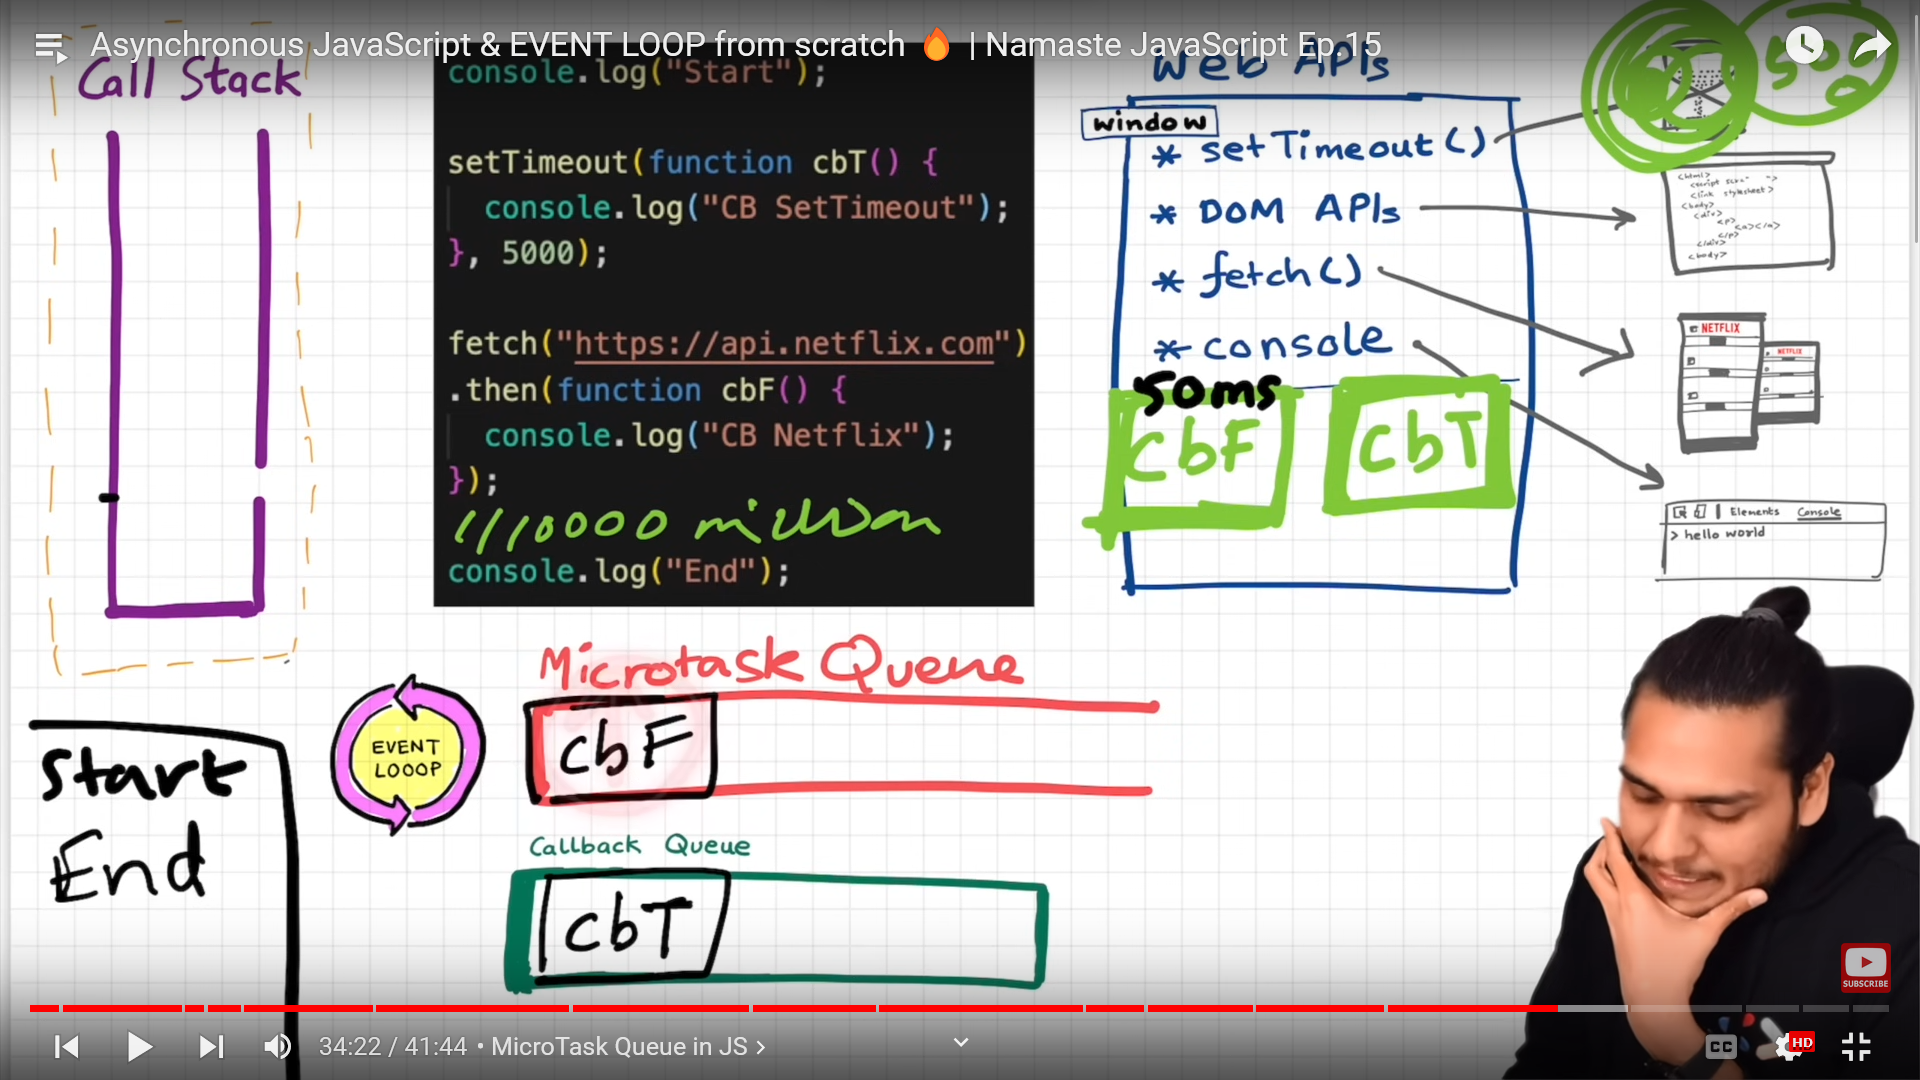 Asynchronous JavaScript & EVENT LOOP from scratch 🔥 | Namaste JavaScript Ep.15
Call Stack
console.log("Start");
setTimeout(function cbT() {
console.log("CB SetTimeout");
}, 5000);
fetch("https://api.netflix.com")
.then(function cbF() {
console.log("CB Netflix");
});
million
console.log("End");
Web APIs
window
* setTimeout()
* DOM APIs
* fetch()
* console
50ms
cbF
cbT
<html>
<link stylesheet>
<body>
<div>
<p>
<a></a>
</p>
</div>
<body>
NETFLIX
NETFLIX
Elements Console
> hello world
Microtask Queue
cbF
EVENT
LOOOP
Callback Queue
cbT
Start
End
SUBSCRIBE
34:22 / 41:44 • MicroTask Queue in JS >
CC
HD